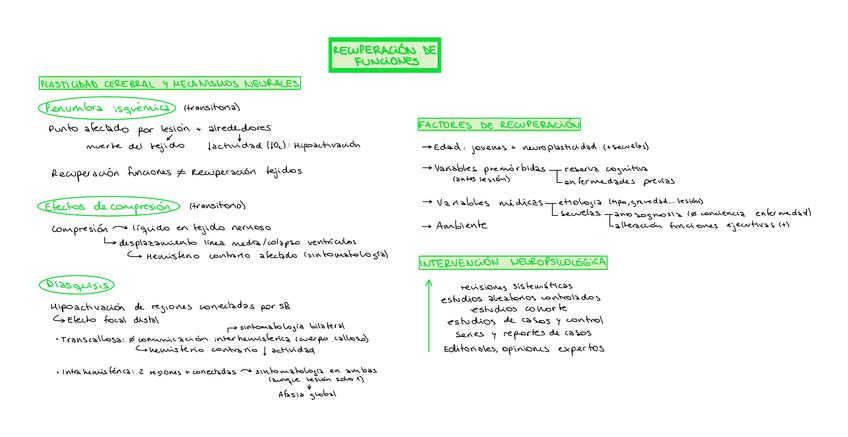 RECUPERACIÓN DE
FUNCIONES
PLASTICIDAD CEREBRAL Y MECANISMOS NEURALES
Penumbra isquémica (transitoria)
Punto afectado por lesión + alrededores
muerte del tejido ↓actividad (↓O₂): Hipoactivación
Recuperación funciones ≠ Recuperación tejidos
Efectos de compresión (transitorio)
Compresión → líquido en tejido nervioso
↳ desplazamiento línea media/colapso ventrículos
↳ Hemisferio contrario afectado (sintomatología)
Diasquisis
Hipoactivación de regiones conectadas por SB
↳ Efecto focal distal
sintomatología bilateral
• Transcallosa: Ø comunicación interhemisférica (cuerpo calloso)
↳ hemisferio contrario ↓ actividad
• Intrahemisférica: 2 regiones + conectadas → sintomatología en ambas
(aunque lesión solo 1)
Afasia global
FACTORES DE RECUPERACIÓN
→ Edad: jóvenes + neuroplasticidad (+secuelas)
→ Variables premórbidas reserva cognitiva
(antes lesión) enfermedades previas
→ Variables médicas etiología (tipo, gravedad... lesión)
secuelas anosognosia (Ø conciencia enfermedad)
alteración funciones ejecutivas (+)
→ Ambiente
INTERVENCIÓN NEUROPSILOLÓGICA
revisiones sistemáticas
estudios aleatorios controlados
estudios cohorte
estudios de casos y control
series y reportes de casos
Editoriales, opiniones expertos